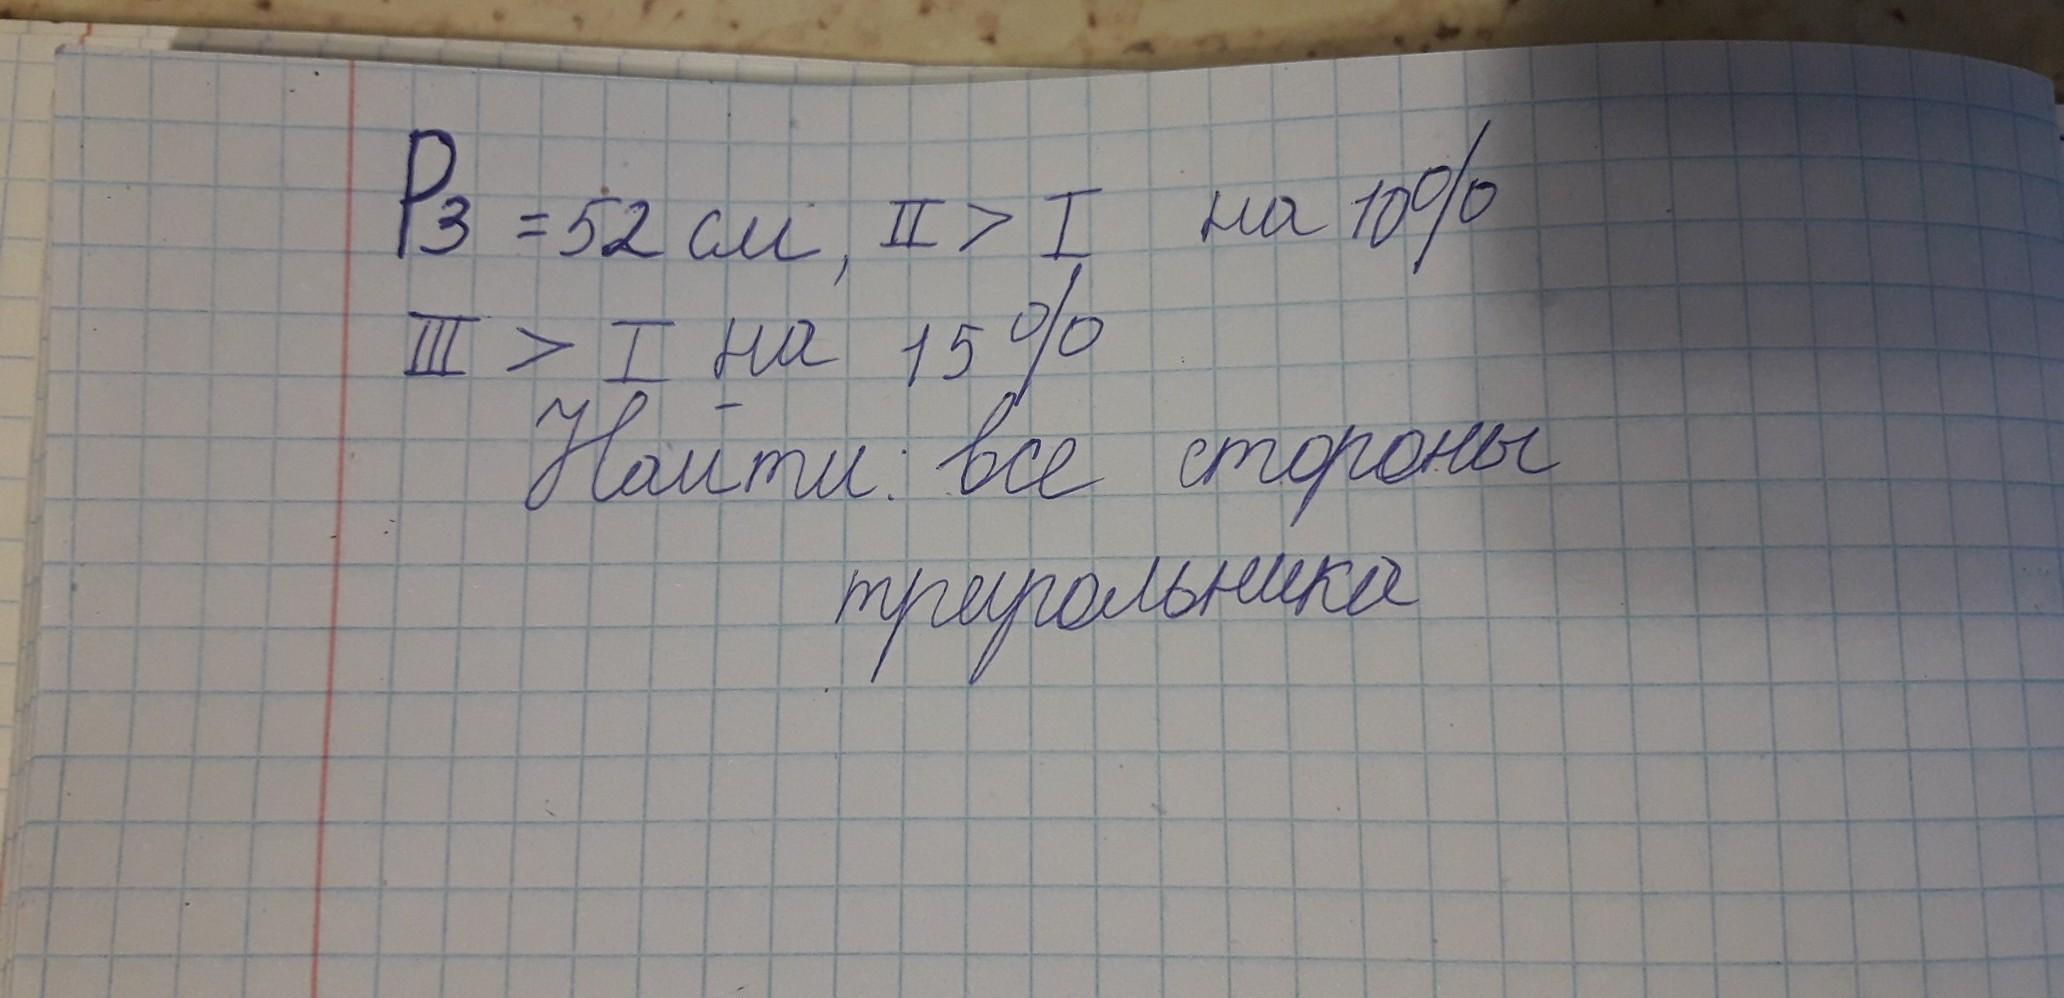 P3 = 52 см, II > I на 10%
III > I на 15%
Найти: все стороны
треугольника